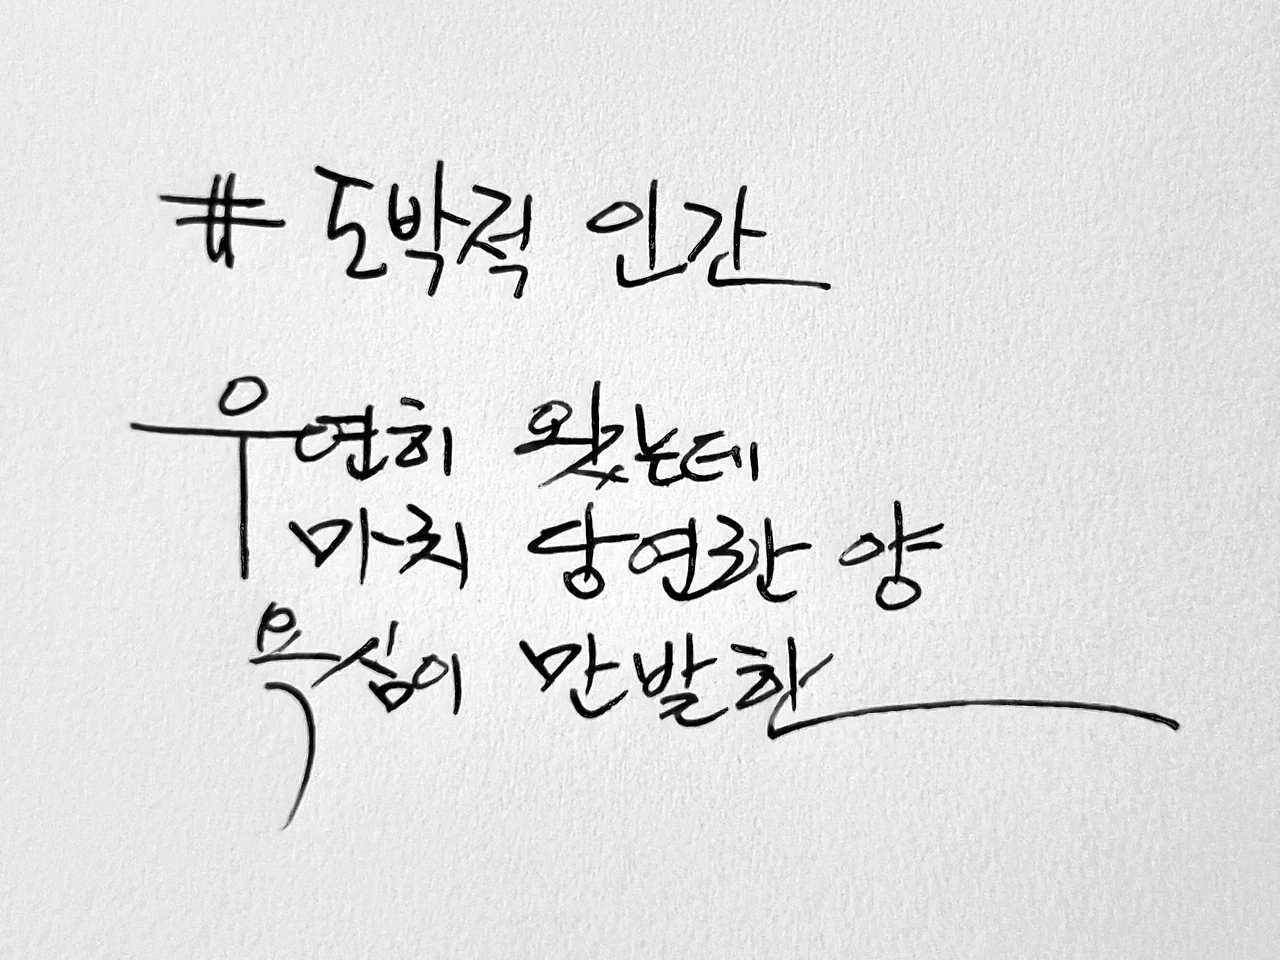 # 도박적 인간
우연히 왔는데
마치 당연란 양
욕심이 만발한